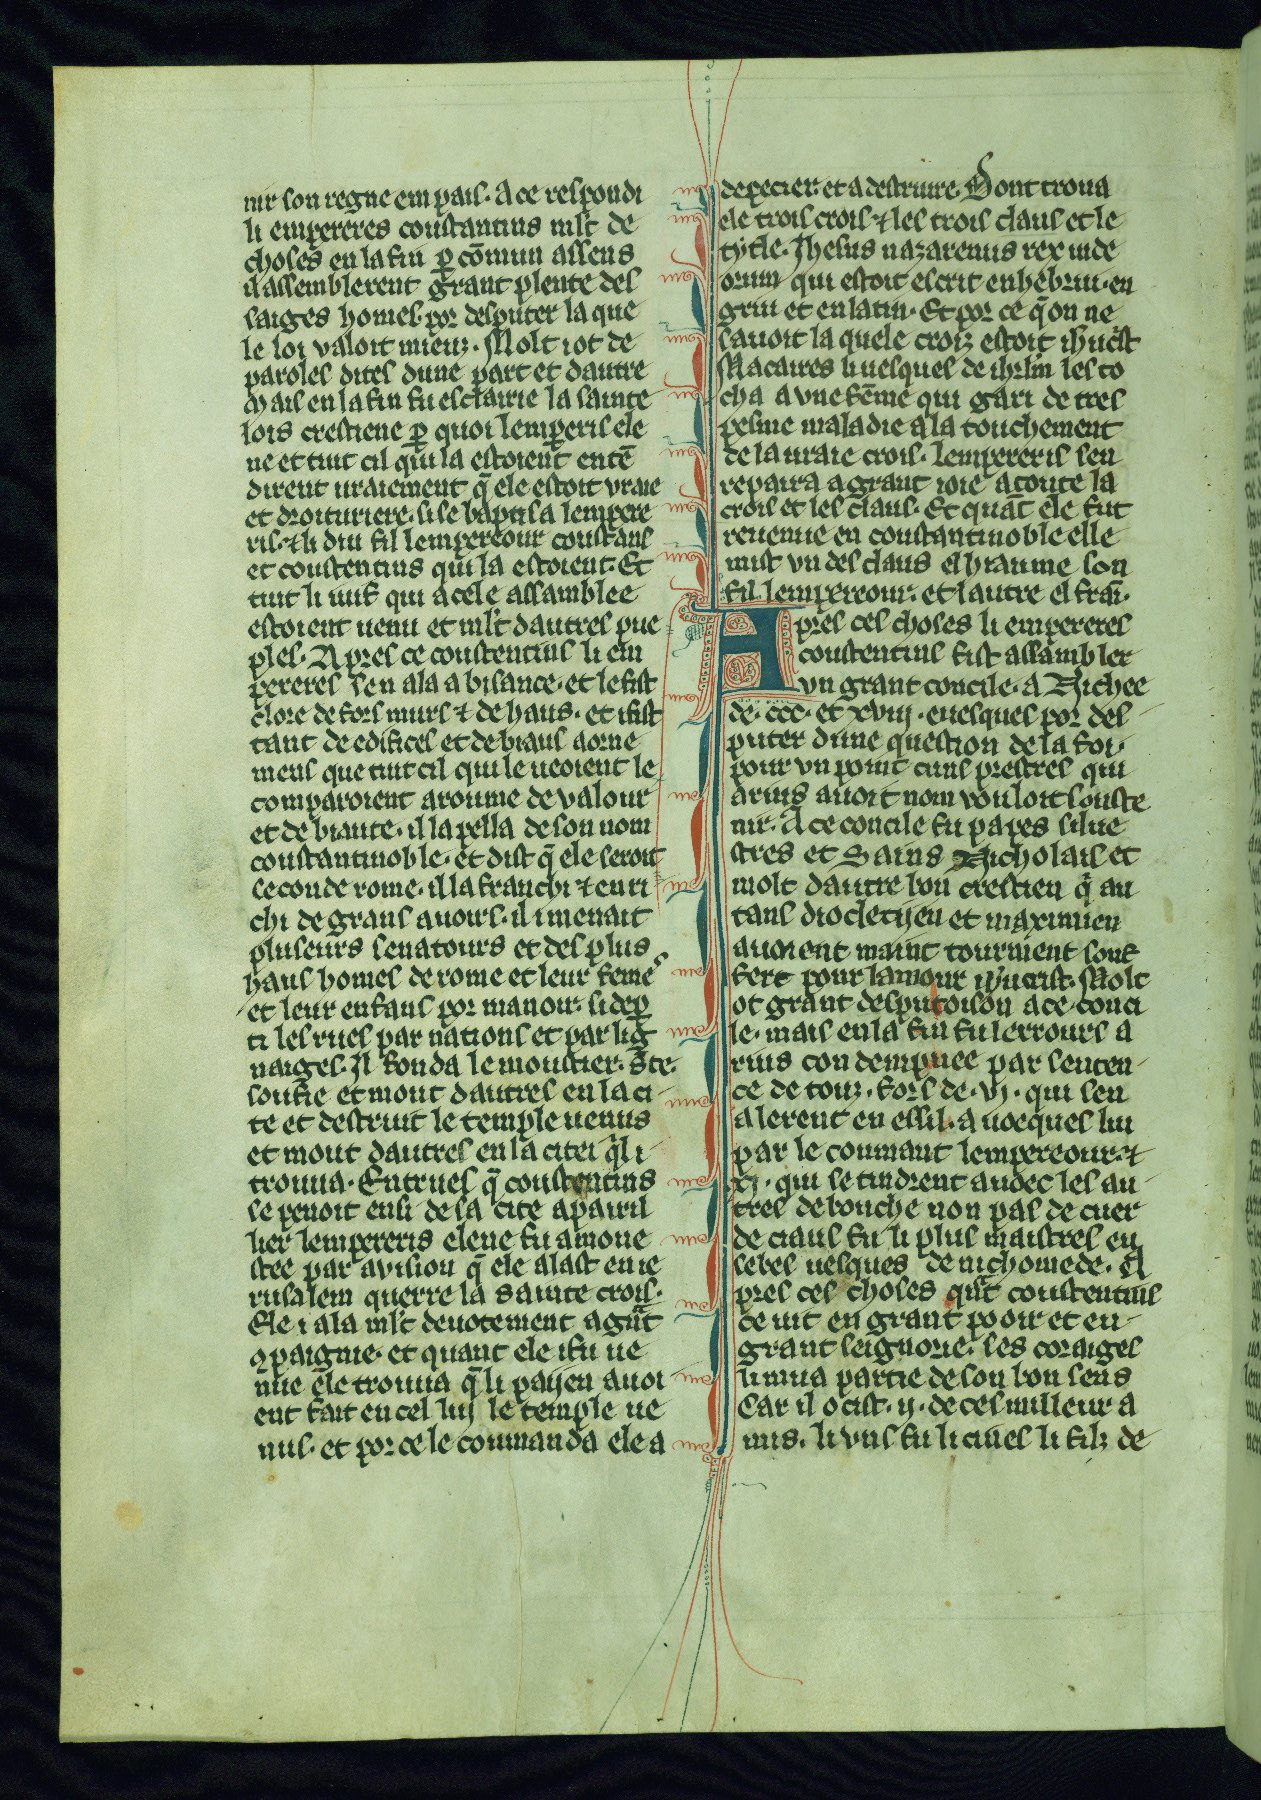 nir son regne em pais. A ce respondi
li empereres constantins ml't de
choses en la fin ꝑ cōmun assens
il assemblerent grant plente des
saiges homes. por desputer la que
le loi valoit mieuz. Molt iot de
paroles dites dune part et dautre
Mais en la fin fu esclairie la sainte
lois crestiene ꝑ quoi lemperis ele
ne et tuit cil qui la estoient entē
dirent uraiement q̄ ele estoit vraie
et droituriere. si se baptisa lempere
ris. ⁊ li dui fil lempereour constans
et constentins qui la estoient. Et
tuit li iuif qui a cele assamblee
estoient uenu et ml't dautres pue
ples. Apres ce constentins li em
pereres sen ala a bisance. et le fist
clore de fors murs ⁊ de haus. et ifist
tant de edifices et de biaus aorne
mens que tuit cil qui le ueoient le
comparoient a roume de valour
et de biaute. il lapella de son nom
constantinoble. et dist q̄ ele seroit
seconde rome. il la franchi ⁊ enri
chi de grans auoirs. il i menait
pluseurs senatours et des plus
haus homes de rome et leur femes
et leur enfans por manoir. si depꝑ
ti les rues par nations et par lig
naiges. Il fonda le moustier. ste.
soufie et mont dautres en la ci-
te et destruit le temple uenus
et mout dautres en la citei q'l i-
trouua. Entrues q̄ constentins
se penoit ensi de sa cite apairil
lier lempereris elene fu amone
stee par avision q̄ ele alast en ie
rusalem querre la sainte crois.
Ele i ala ml't deuotement a gn̄t
ꝯpaignie. et quant ele ifu ue
nue ele trouua q̄ li paijen auoi
ent fait en cel liu le temple ue
nus. et por ce le commanda ele a
depecier. et a destruire. Dont troua
ele trois crois ⁊ les trois claus et le
tytle. Jhesus nazarenus rex iude
orum qui estoit escrit en hebriu. en
griu et en latin. Et por ce q̄ on ne
sauoit la quele croiz estoit ihucst
Macaires li uesques de ihrlm les to
cha a vne fēme qui gari de tres
pesme maladie a la touchement
de la uraie crois. lempereris sen
repaira a grant ioie a toute la
crois et les claus. Et quāt ele fut
reuenue en constantinoble elle
mist vn des claus el hiaume son
fil. lempereour. et lautre el frai.
Apres ces choses li empereres
constentins fist assambler
vn grant concile. a Nichee
de. ccc. et xviij. euesques por des-
puter dune question de la foi.
pour vn point cuns prestres qui
arius auoit nom vouloit souste
nir. A ce concile fu papes silue
stres et Sains Nicholais et
molt dautre bon crestien q̄ au
tans diocletijen et maximien
auoient maint tourment souf
fert pour lamour ihucrist. Molt
ot grant desputoison a ce conci
le. mais en la fin fu lerrours a
rius condempnee par senten-
ce de touz. fors de. vj. qui sen
alerent en essil. a uocques lui
par le coumant lempereour. ⁊
xj. qui se tindrent audec les au-
tres de bouche non pas de cuer
de ciaus fu li plus maistres eu
sebes uesques de nichomede. A
pres ces choses qn̄t constentins
ce uit en grant pooir et en-
grant seignorie. ses coraiges
li mua partie de son bon sens
Car il ocist. ij. de ces milleur a
mis. li vns fu li cuies li filz de